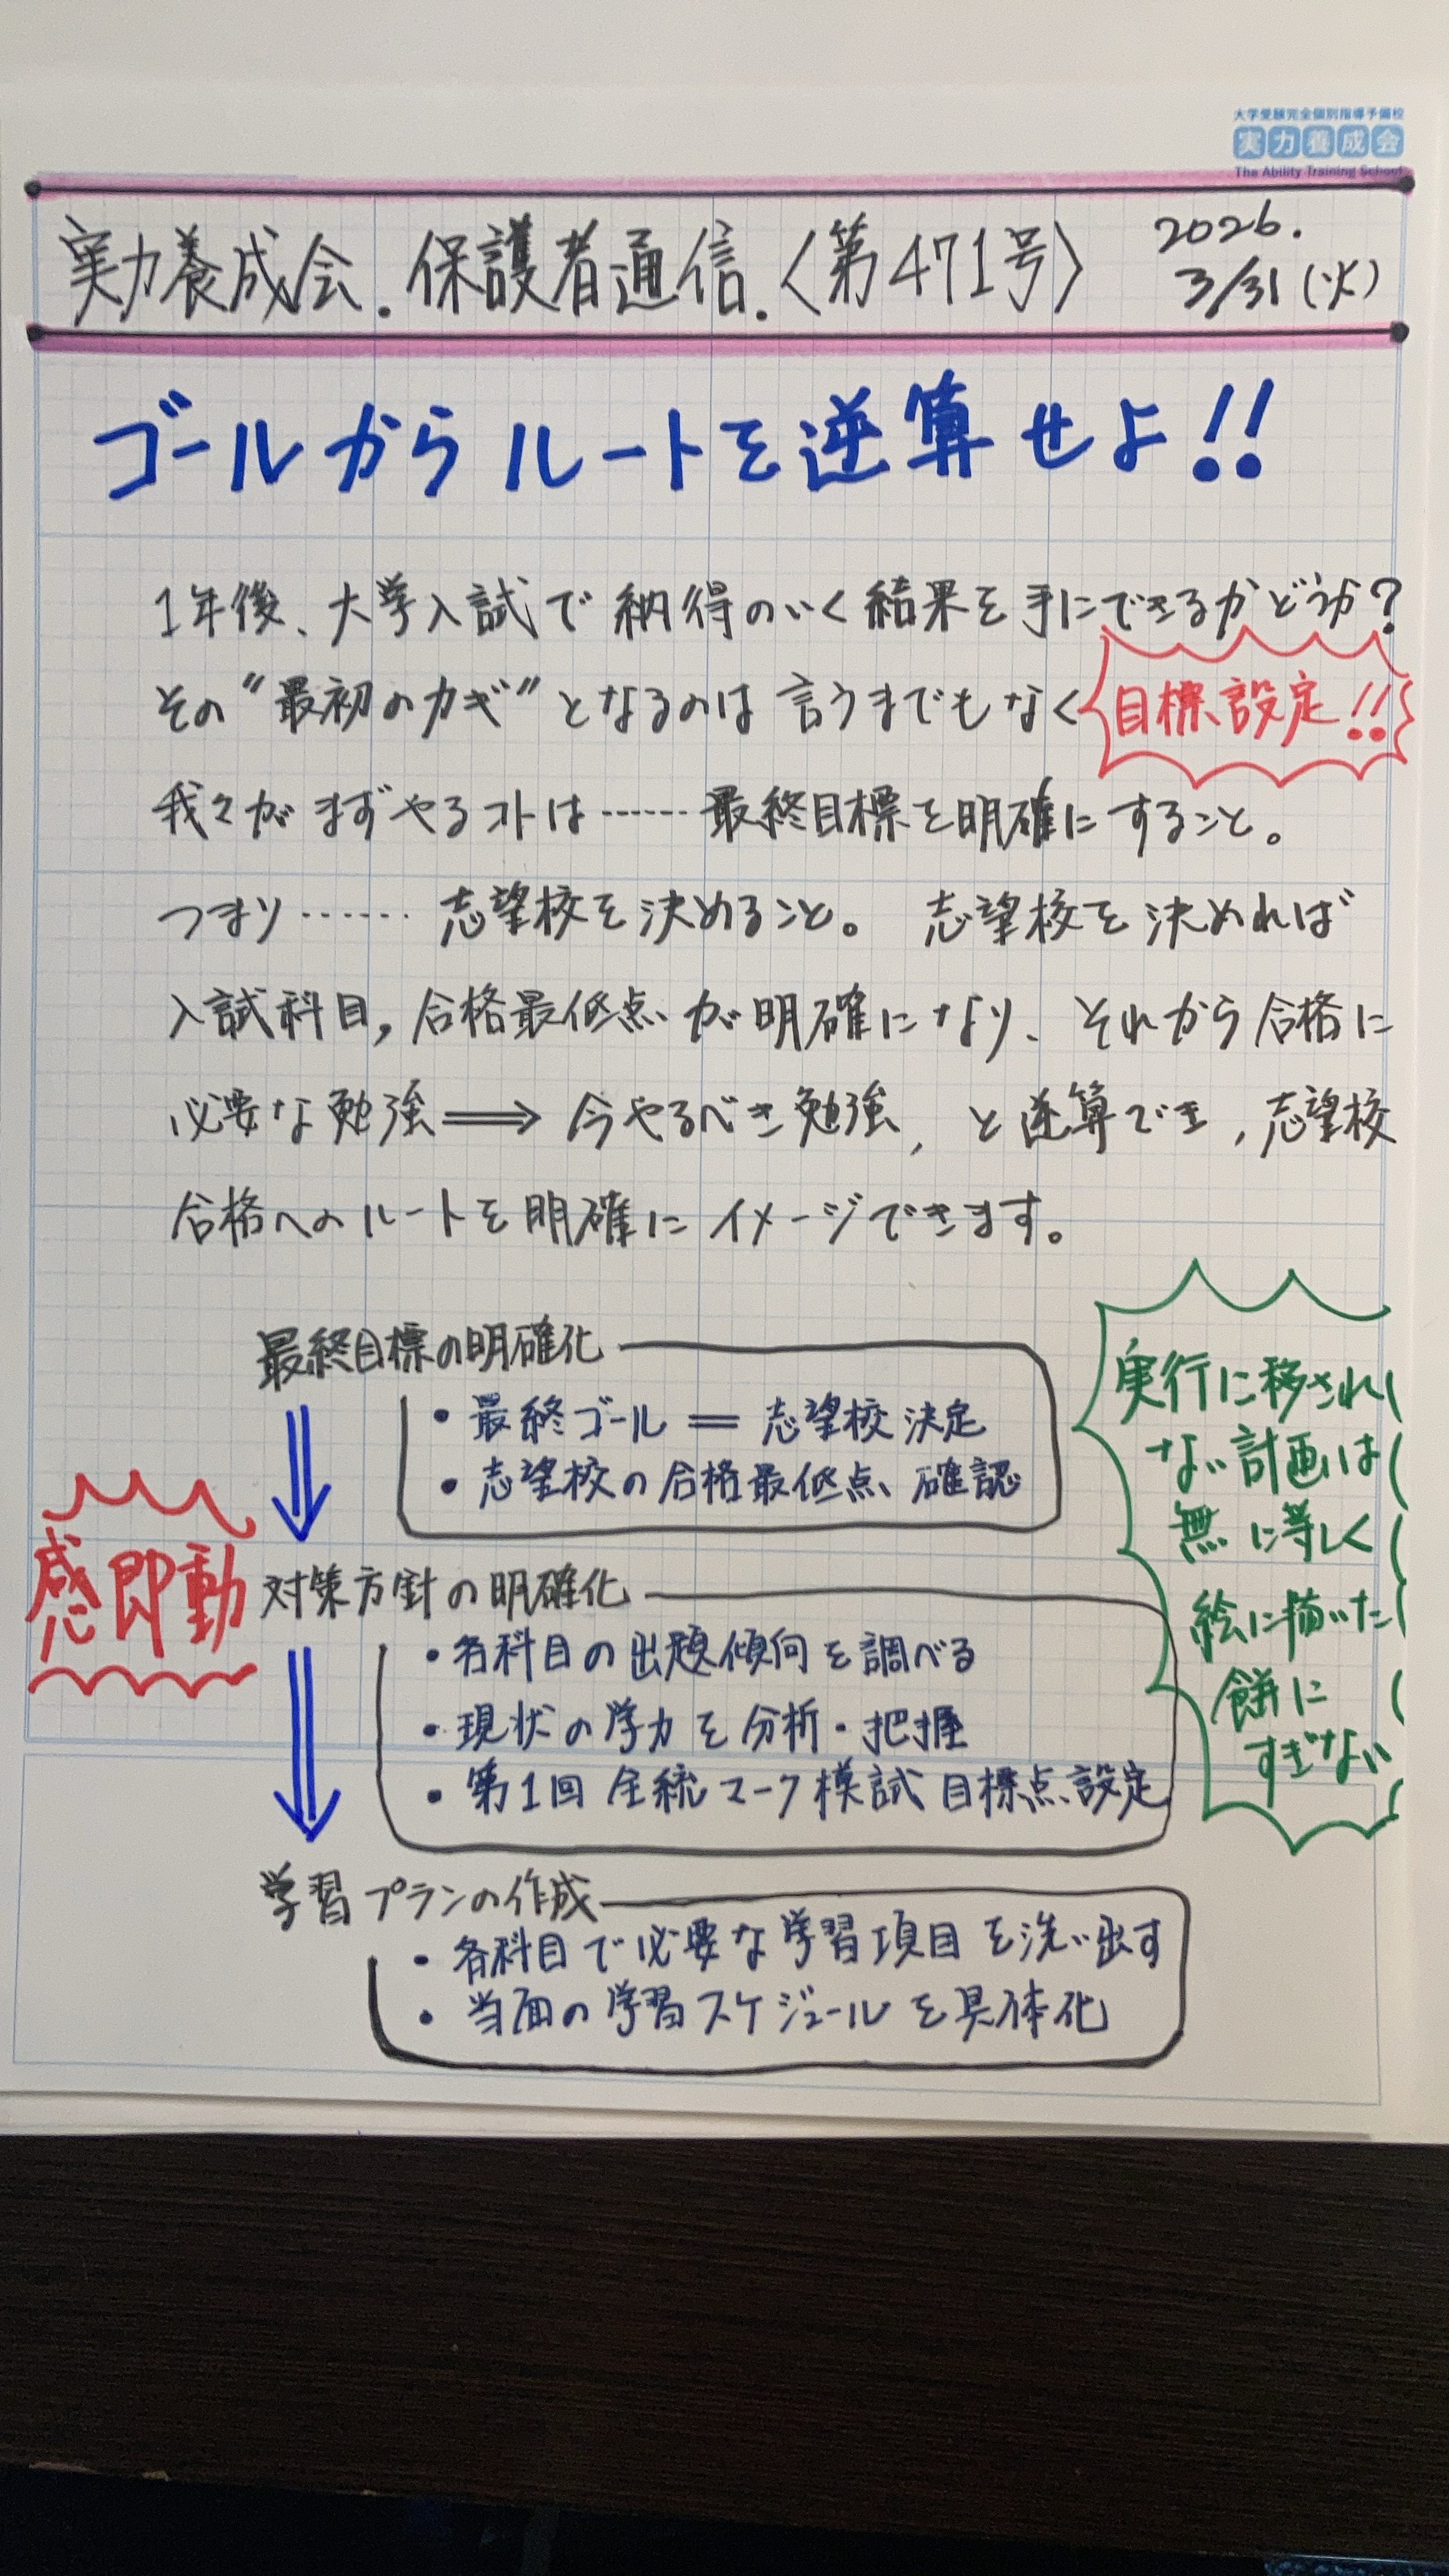 大学受験完全個別指導予備校
実力養成会
The Ability Training School
実力養成会.保護者通信.〈第471号〉
2026.
3/31(火)
ゴールからルートを逆算せよ!!
1年後、大学入試で納得のいく結果を手にできるかどうか?
その“最初のカギ”となるのは言うまでもなく
目標設定!!
我々がまずやるコトは……最終目標を明確にすること。
つまり……志望校を決めること。志望校を決めれば
入試科目,合格最低点が明確になり、それから合格に
必要な勉強⟹今やるべき勉強,と逆算でき,志望校
合格へのルートを明確にイメージできます。
最終目標の明確化
・最終ゴール=志望校決定
・志望校の合格最低点、確認
感即動
対策方針の明確化
・各科目の出題傾向を調べる
・現状の学力を分析・把握
・第1回全統マーク模試目標点設定
学習プランの作成
・各科目で必要な学習項目を洗い出す
・当面の学習スケジュールを具体化
実行に移され
ない計画は
無に等しく
絵に描いた
餅に
すぎない